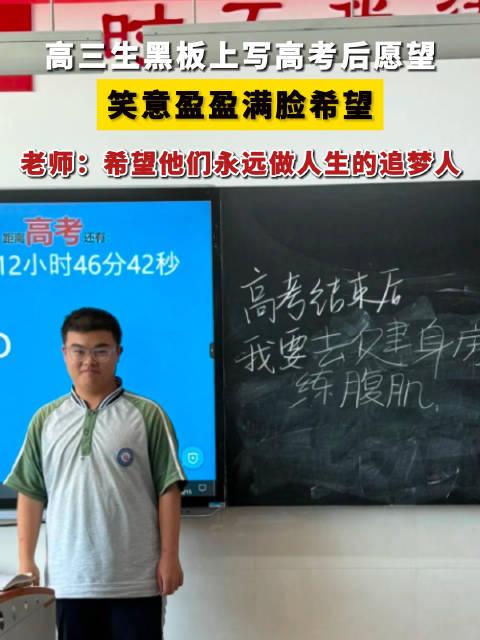 高三生黑板上写高考后愿望
笑意盈盈满脸希望
老师：希望他们永远做人生的追梦人
距离高考还有:
12小时46分42秒
高考结束后
我要去健身房
练腹肌.